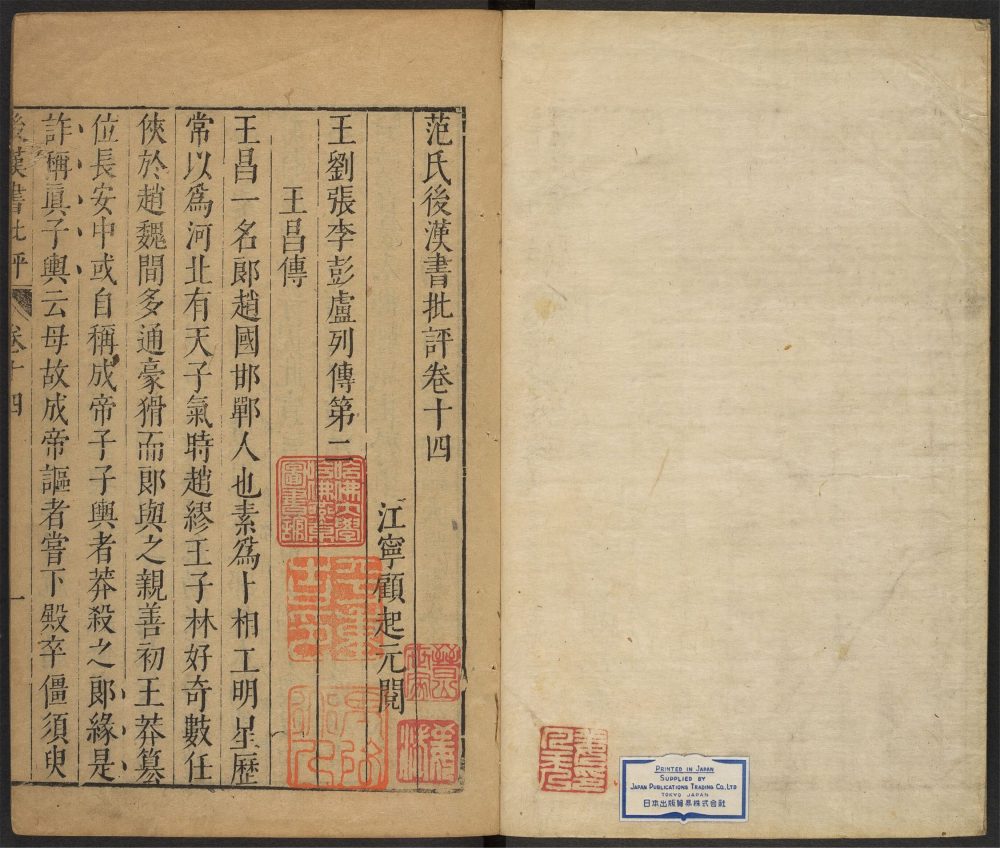 范氏後漢書批評卷十四
江寧顧起元閱
王劉張李彭盧列傳第二
王昌傳
王昌一名郎趙國邯鄲人也素爲卜相工明星歷
常以爲河北有天子氣時趙繆王子林好奇數任
俠於趙魏間多通豪猾而郎與之親善初王莽篡
位長安中或自稱成帝子子輿者莽殺之郎緣是
詐稱眞子輿云母故成帝謳者嘗下殿卒僵須臾
後漢書批評
卷十四
一
哈佛大學
哈佛燕京
圖書館
PRINTED IN JAPAN
SUPPLIED BY
JAPAN PUBLICATIONS TRADING CO., LTD
TOKYO JAPAN
日本出版貿易株式会社